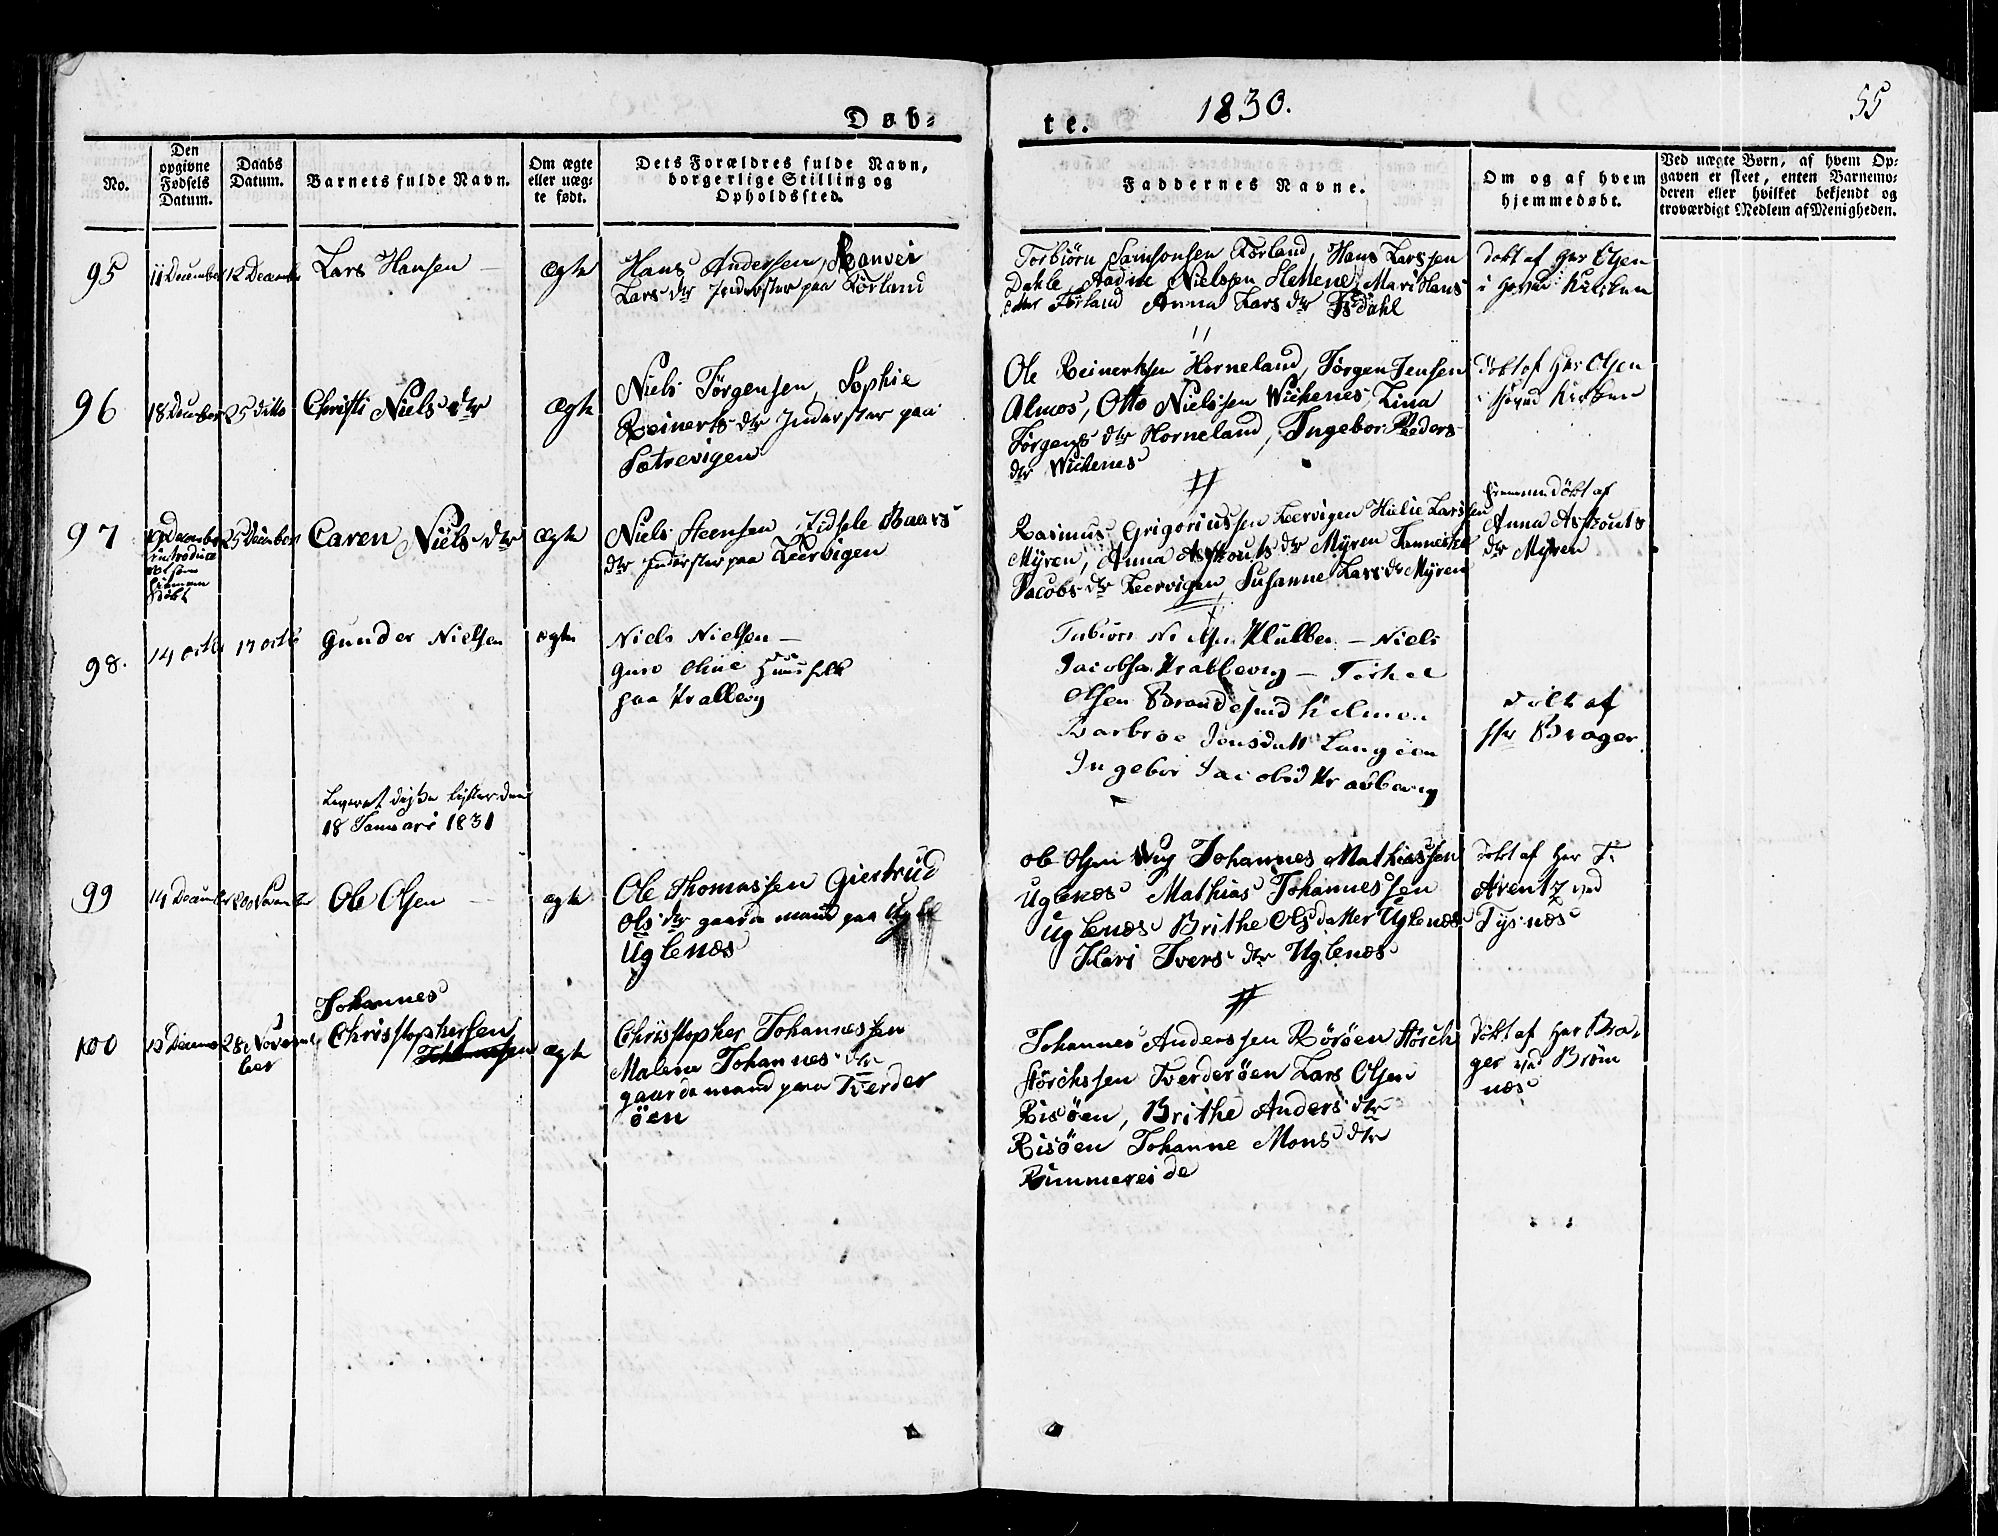 Døb-
te.
1830.
55
No.
Den
opgivne
Fødsels
Datum.
Daabs
Datum.
Barnets fulde Navn.
Om ægte
eller uæg-
te født.
Dets Forældres fulde Navn,
borgerlige Stilling og
Opholdssted.
Faddernes Navne.
Om og af hvem
hjemmedøbt.
Ved uægte Børn, af hvem Op-
gaven er skeet, enten Barnemo-
deren eller hvilket bekjendt og
troværdigt Medlem af Menigheden.
95
11 December
12 December
Lars Hansen
ægte
Hans Andersen, Ranvei
Lars dtr Inderster paa Førland
Torbiørn Samsonsen Førland, Hans Larssen
Dahle, Aadne Nielssen Hettene, Mari Hans
datter Førland Anna Lars dtr Isdahl
døbt af Her Olsen
i Kirken
96
18 December
25 ditto
Christi Niels dtr
ægte
Niels Jørgensen, Sophie
Reinerts dtr Inderster paa
Sætrevigen
Ole Reinertsen Horneland, Jørgen Jensen
Almos, Otto Nielssen Wichenes Lina
Jørgens dtr Horneland, Ingebor Peders
dtr Wichenes
døbt af Her Olsen
i Kirken
97
December
introducer
et som
hiemme
døbt
25 December
Caren Niels dtr
ægte
Niels Steensen Zidsele Baars
dtr Inderster paa Leervigen
Rasmus Grigoriussen Leervigen Helie Larssen
Myren, Anna Askouts dtr Myren
Jacobs dtr Leervigen, Susanne Lars dtr Myren
hiemmedøbt af
Anna Askouts
dtr Myren
98.
14 octb
17 octb
Gunder Nielsen
ægte
Niels Nielsen —
Guro Oline Huusfolk
paa Krabbevig
Torbiørn Nielsen Klubben — Niels
Jacobsen Krabbevig — Torkel
Olsen Brandesund Holmen
Barbroe Jonsdatt Langøen
Ingebor Jacobsd Krabbevig
døbt af
Hr Brager
Leveret disse lister den
18 Januari 1831
99
14 December
Ole Olsen
ægte
Ole Thomassen Giertrud
Ols dtr gaardemand paa
Uglenæs
Ole Olsen Wiig Johannes Mathiassen
Uglenæs Mathias Johannessen
Uglenæs Brithe Olsdatter Uglenæs
Kari Ivers dtr Uglenæs
døbt af Her F.
Arentz ved
Tysnæs
100
28 Novem
ber
Johannes
Christophersen
Johannessen
ægte
Christopher Johannessen
Malena Johannes dtr
gaardemand paa Tverder
øen
Johannes Anderssen Rørøen Størch
Størchssen Tverderøen Lars Olsen
Risøen, Brithe Anders dtr
Risøen Johanne Mons dtr
Rimmereide
døbt af Her Bra-
ger ved Brøm
næs